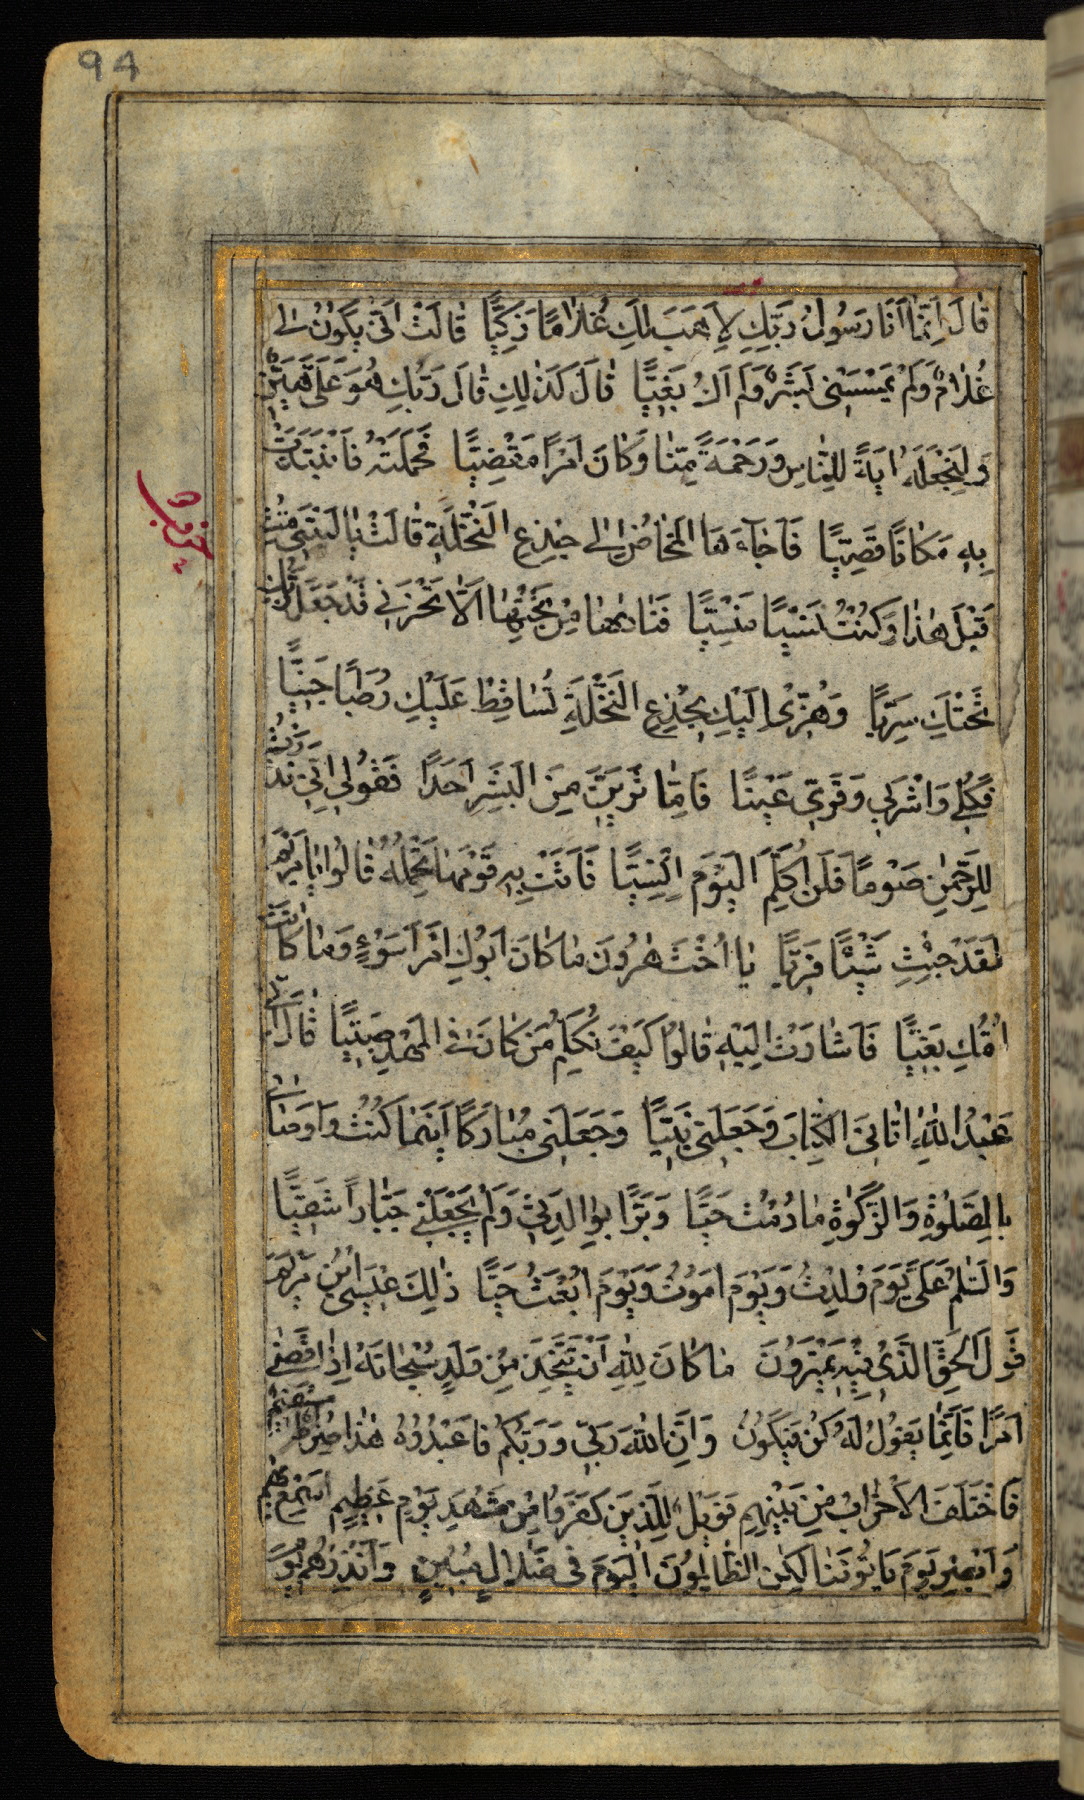 94
قالَ اِنَّمٰا اَنَا رَسُولُ رَبِّكِ لِاَهَبَ لَكِ غُلٰامًا زَكِيًّا قٰالَتْ اَنّٰى يَكُونُ لى
غُلٰامٌ وَلَمْ يَمْسَسْنى بَشَرٌ وَلَمْ اَكُ بَغِيًّا قٰالَ كَذٰلِكِ قٰالَ رَبُّكِ هُوَ عَلَىَّ هَيِّنٌ
وَلِنَجْعَلَهُ اٰيَةً لِلنّٰاسِ وَرَحْمَةً مِنّٰا وَكٰانَ اَمْرًا مَقْضِيًّا فَحَمَلَتْهُ فَانْتَبَذَتْ
بِهٖ مَكٰانًا قَصِيًّا فَاَجٰآءَهَا الْمَخٰاضُ اِلى جِذْعِ النَّخْلَةِ قٰالَتْ يٰا لَيْتَنى مِتُّ
قَبْلَ هٰذٰا وَكُنْتُ نَسْيًا مَنْسِيًّا فَنٰادٰيهٰا مِنْ تَحْتِهٰا اَلّٰا تَحْزَنى قَدْ جَعَلَ رَبُّكِ
تَحْتَكِ سَرِيًّا وَهُزّى اِلَيْكِ بِجِذْعِ النَّخْلَةِ تُسٰاقِطْ عَلَيْكِ رُطَبًا جَنِيًّا
فَكُلى وَاشْرَبى وَقَرّى عَيْنًا فَاِمّٰا تَرَيِنَّ مِنَ الْبَشَرِ اَحَدًا فَقُولى اِنّى نَذَرْتُ
لِلرَّحْمٰنِ صَوْمًا فَلَنْ اُكَلِّمَ الْيَوْمَ اِنْسِيًّا فَاَتَتْ بِهٖ قَوْمَهٰا تَحْمِلُهُ قٰالُوا يٰا مَرْيَمُ
لَقَدْ جِئْتِ شَيْئًا فَرِيًّا يٰا اُخْتَ هٰرُونَ مٰا كٰانَ اَبُوكِ امْرَاَ سَوْءٍ وَمٰا كٰانَتْ
اُمُّكِ بَغِيًّا فَاَشٰارَتْ اِلَيْهِ قٰالُوا كَيْفَ نُكَلِّمُ مَنْ كٰانَ فِى الْمَهْدِ صَبِيًّا قٰالَ اِنّى
عَبْدُ اللّٰهِ اٰتٰانِىَ الْكِتٰابَ وَجَعَلَنى نَبِيًّا وَجَعَلَنى مُبٰارَكًا اَيْنَمٰا كُنْتُ وَاَوْصٰانى
بِالصَّلٰوةِ وَالزَّكٰوةِ مٰا دُمْتُ حَيًّا وَبَرًّا بِوٰالِدَتى وَلَمْ يَجْعَلْنى جَبّٰارًا شَقِيًّا
وَالسَّلٰمُ عَلَىَّ يَوْمَ وُلِدْتُ وَيَوْمَ اَمُوتُ وَيَوْمَ اُبْعَثُ حَيًّا ذٰلِكَ عيسَى ابْنُ مَرْيَمَ
قَوْلَ الْحَقِّ الَّذى فيهِ يَمْتَرُونَ مٰا كٰانَ لِلّٰهِ اَنْ يَتَّخِذَ مِنْ وَلَدٍ سُبْحٰانَهُ اِذٰا قَضٰى
اَمْرًا فَاِنَّمٰا يَقُولُ لَهُ كُنْ فَيَكُونُ وَاِنَّ اللّٰهَ رَبّى وَرَبُّكُمْ فَاعْبُدُوهُ هٰذٰا صِرٰاطٌ مُسْتَقيمٌ
فَاخْتَلَفَ الْاَحْزٰابُ مِنْ بَيْنِهِمْ فَوَيْلٌ لِلَّذينَ كَفَرُوا مِنْ مَشْهَدِ يَوْمٍ عَظيمٍ اَسْمِعْ بِهِمْ
وَاَبْصِرْ يَوْمَ يَاْتُونَنٰا لٰكِنِ الظّٰالِمُونَ الْيَوْمَ فى ضَلٰالٍ مُبينٍ وَاَنْذِرْهُمْ يَوْمَ